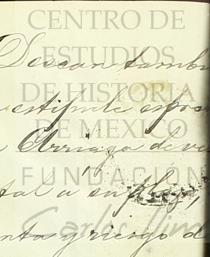 CENTRO DE
ESTUDIOS
DE HISTORIA
DE MEXICO
FUNDACION
Carlos Slim
Desean tambi
estipule espres
Arriaga de ve
tal a un plazo,
nta y riesgo d